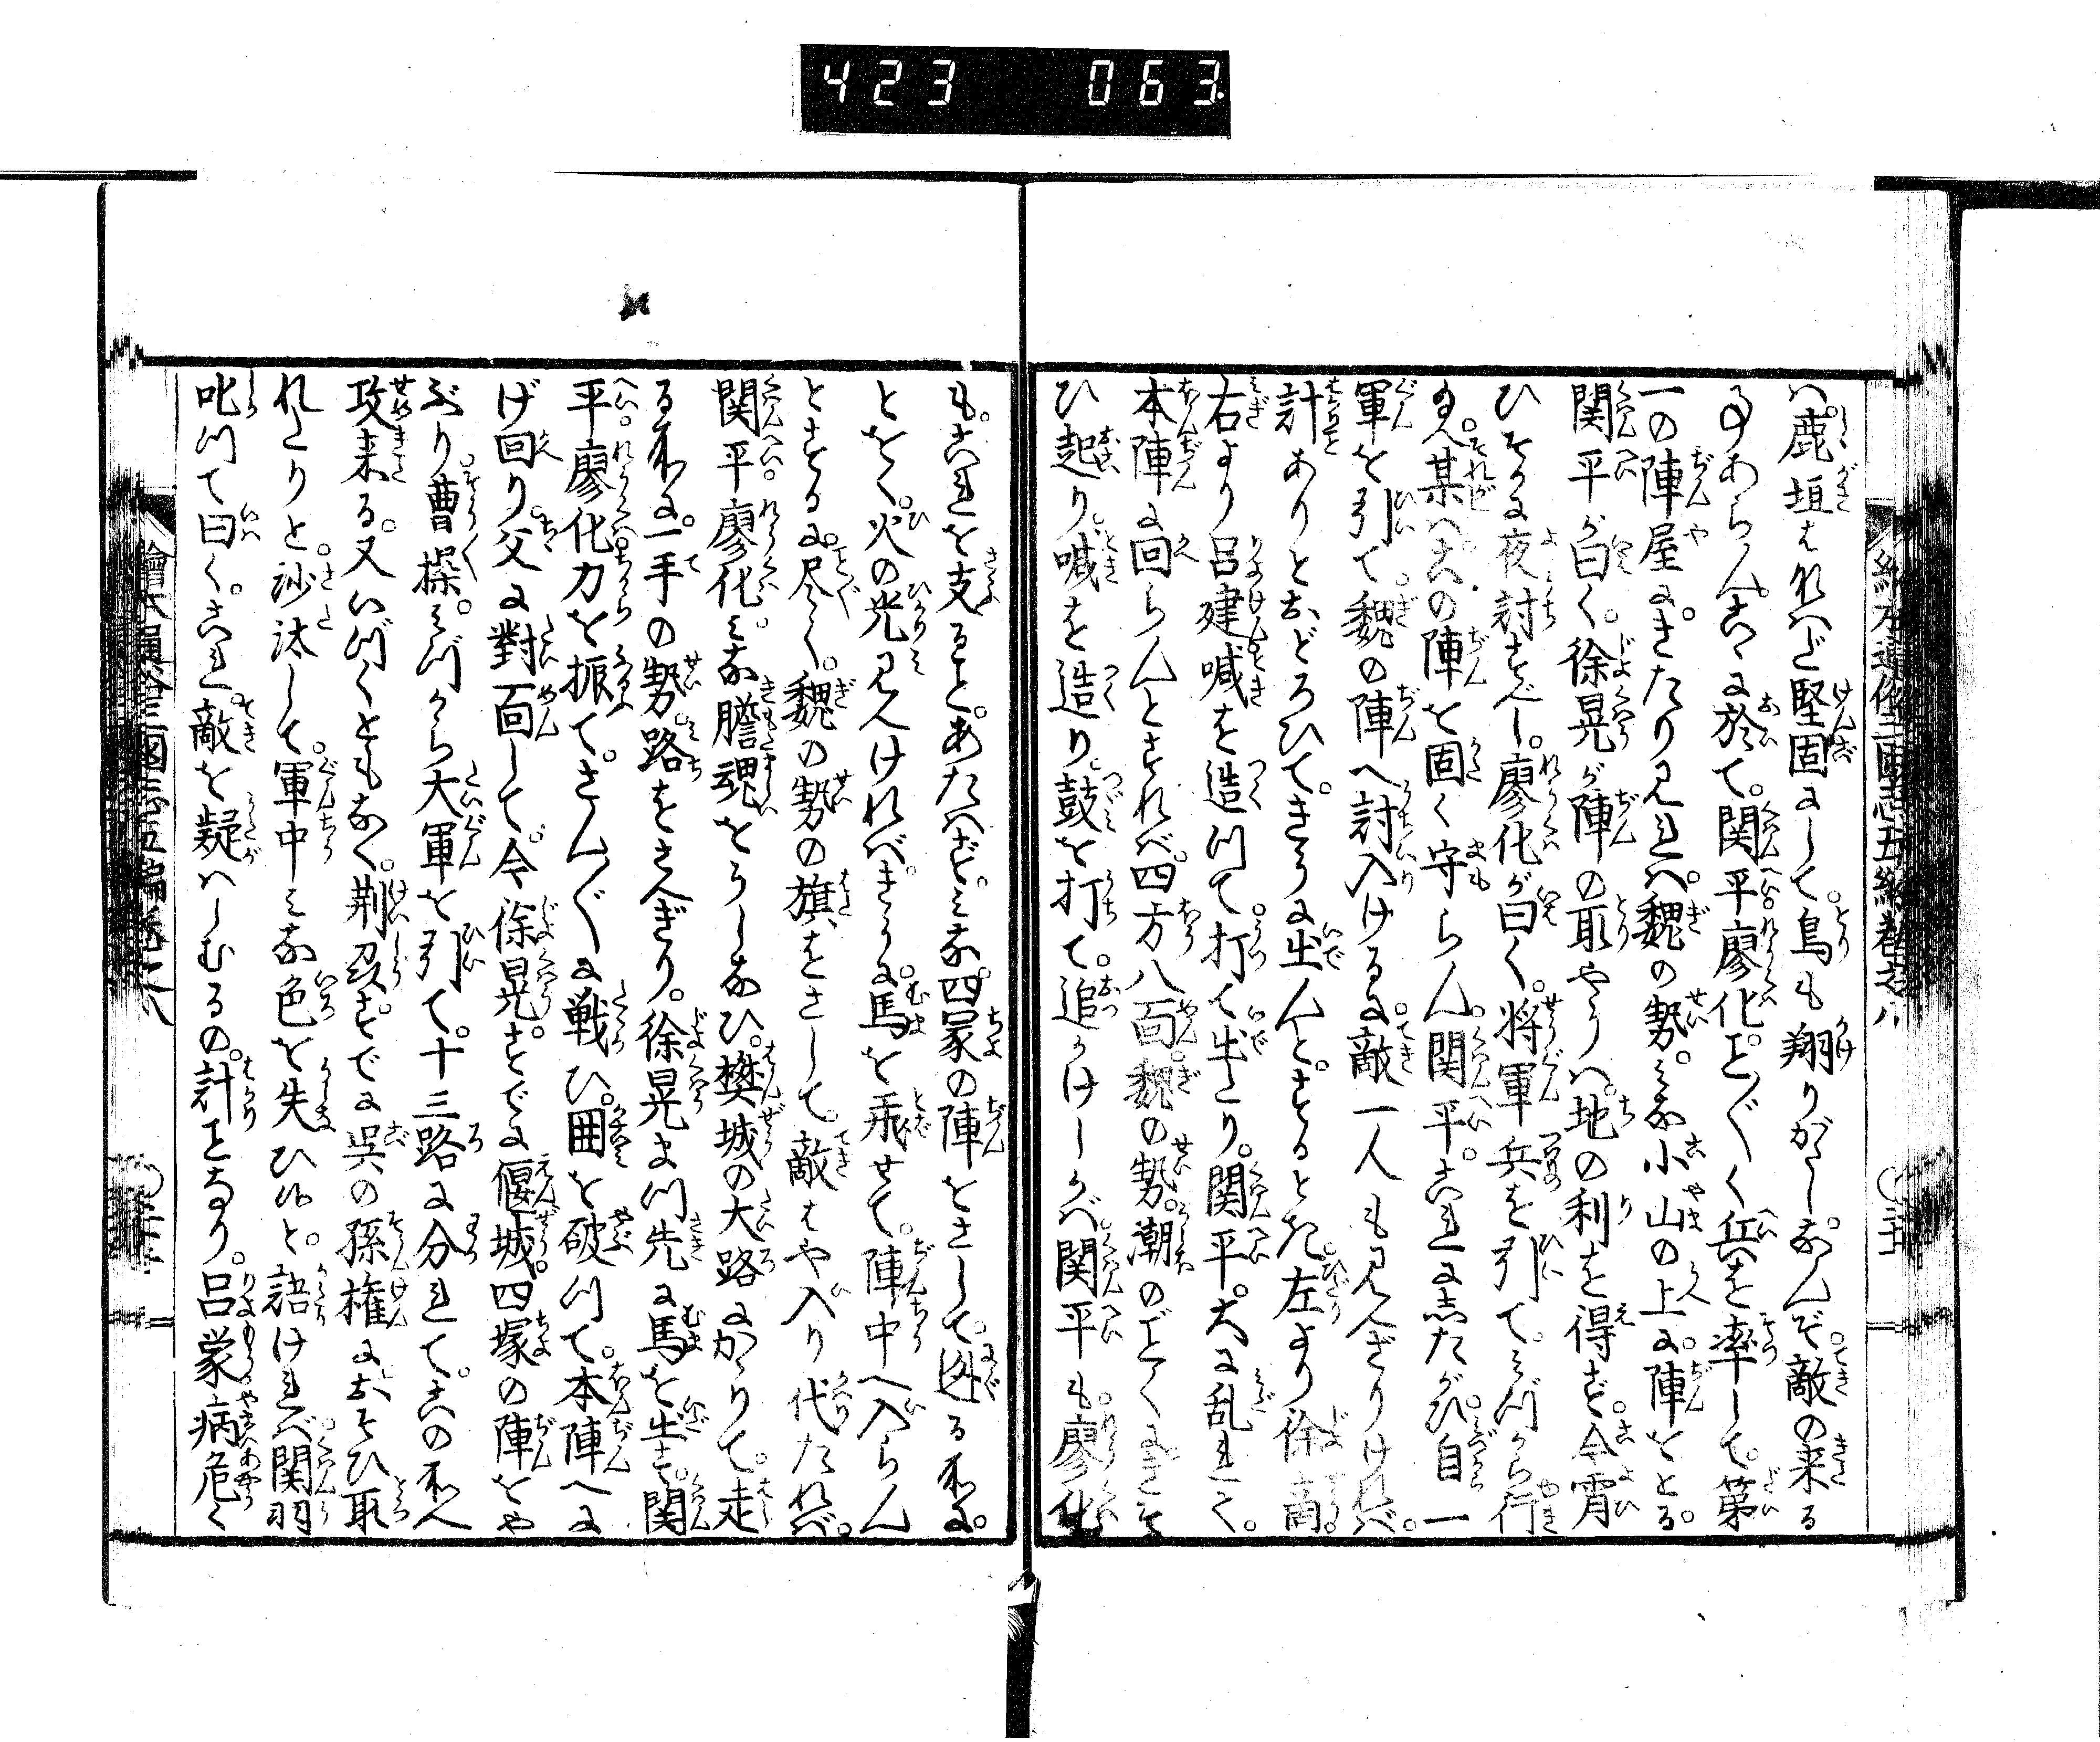 423 063
絵本通俗三国志五編巻之八
ハ。鹿垣をれバど堅固にして。鳥も翔りがたし。なんぞ敵の来る
事あらん。こゝに於て。関平廖化。こと〴〵く兵を率して。第
一の陣屋に。きたり見れバ。魏の勢。みな小山の上に。陣をとる。
関平が曰く。徐晃が陣の取やうハ。地の利を得ず。今宵
ひそかに夜討すべし。廖化が曰く。将軍兵を引て。みづから行
玉へ。某ハこの陣を固く守らん。関平。これに志たがひ。自一
軍を引て。魏の陣へ討入けるに。敵一人も見へざりけれバ。
計ありとおどろひて。きうに出んと。するとき。左より徐商。
右より呂建喊を造つて打て出たり。関平。大に乱れて。
本陣に回らんとすれバ。四方八面魏の勢。潮のごとくにきそ
ひ起り。喊を造り。鼓を打て。追かけしかバ。関平も。廖化
も。これを支ること。あたハず。みな。四冢の陣をさして。逃る所に。
とをく。火の光見へけれバ。きうに。馬を乗せて。陣中へ入らん
とするに。尽く。魏の勢の旗をさして。敵はや入り代たれバ。
関平廖化。みな膽魂をうしなひ。樊城の大路にかゝりて。走
る所に。一手の勢。路をさへぎり。徐晃まつ先に馬を出す。関
平。廖化力を振て。さん〴〵に戦ひ。囲を破つて。本陣へに
げ回り。父に對面して。今徐晃。すでに偃城。四塚の陣をや
ぶり。曹操。みづから大軍を引て。十三路に分れて。この所へ
攻来る。又いづくともなく。荆州すでに呉の孫権に。おそひ取
れたりと。沙汰して。軍中みな色を失ひぬと。語けれバ。関羽
叱つて曰く。これ。敵を疑ハしむるの。計ことなり。呂蒙病危く
繪本通俗三國志五編巻之八